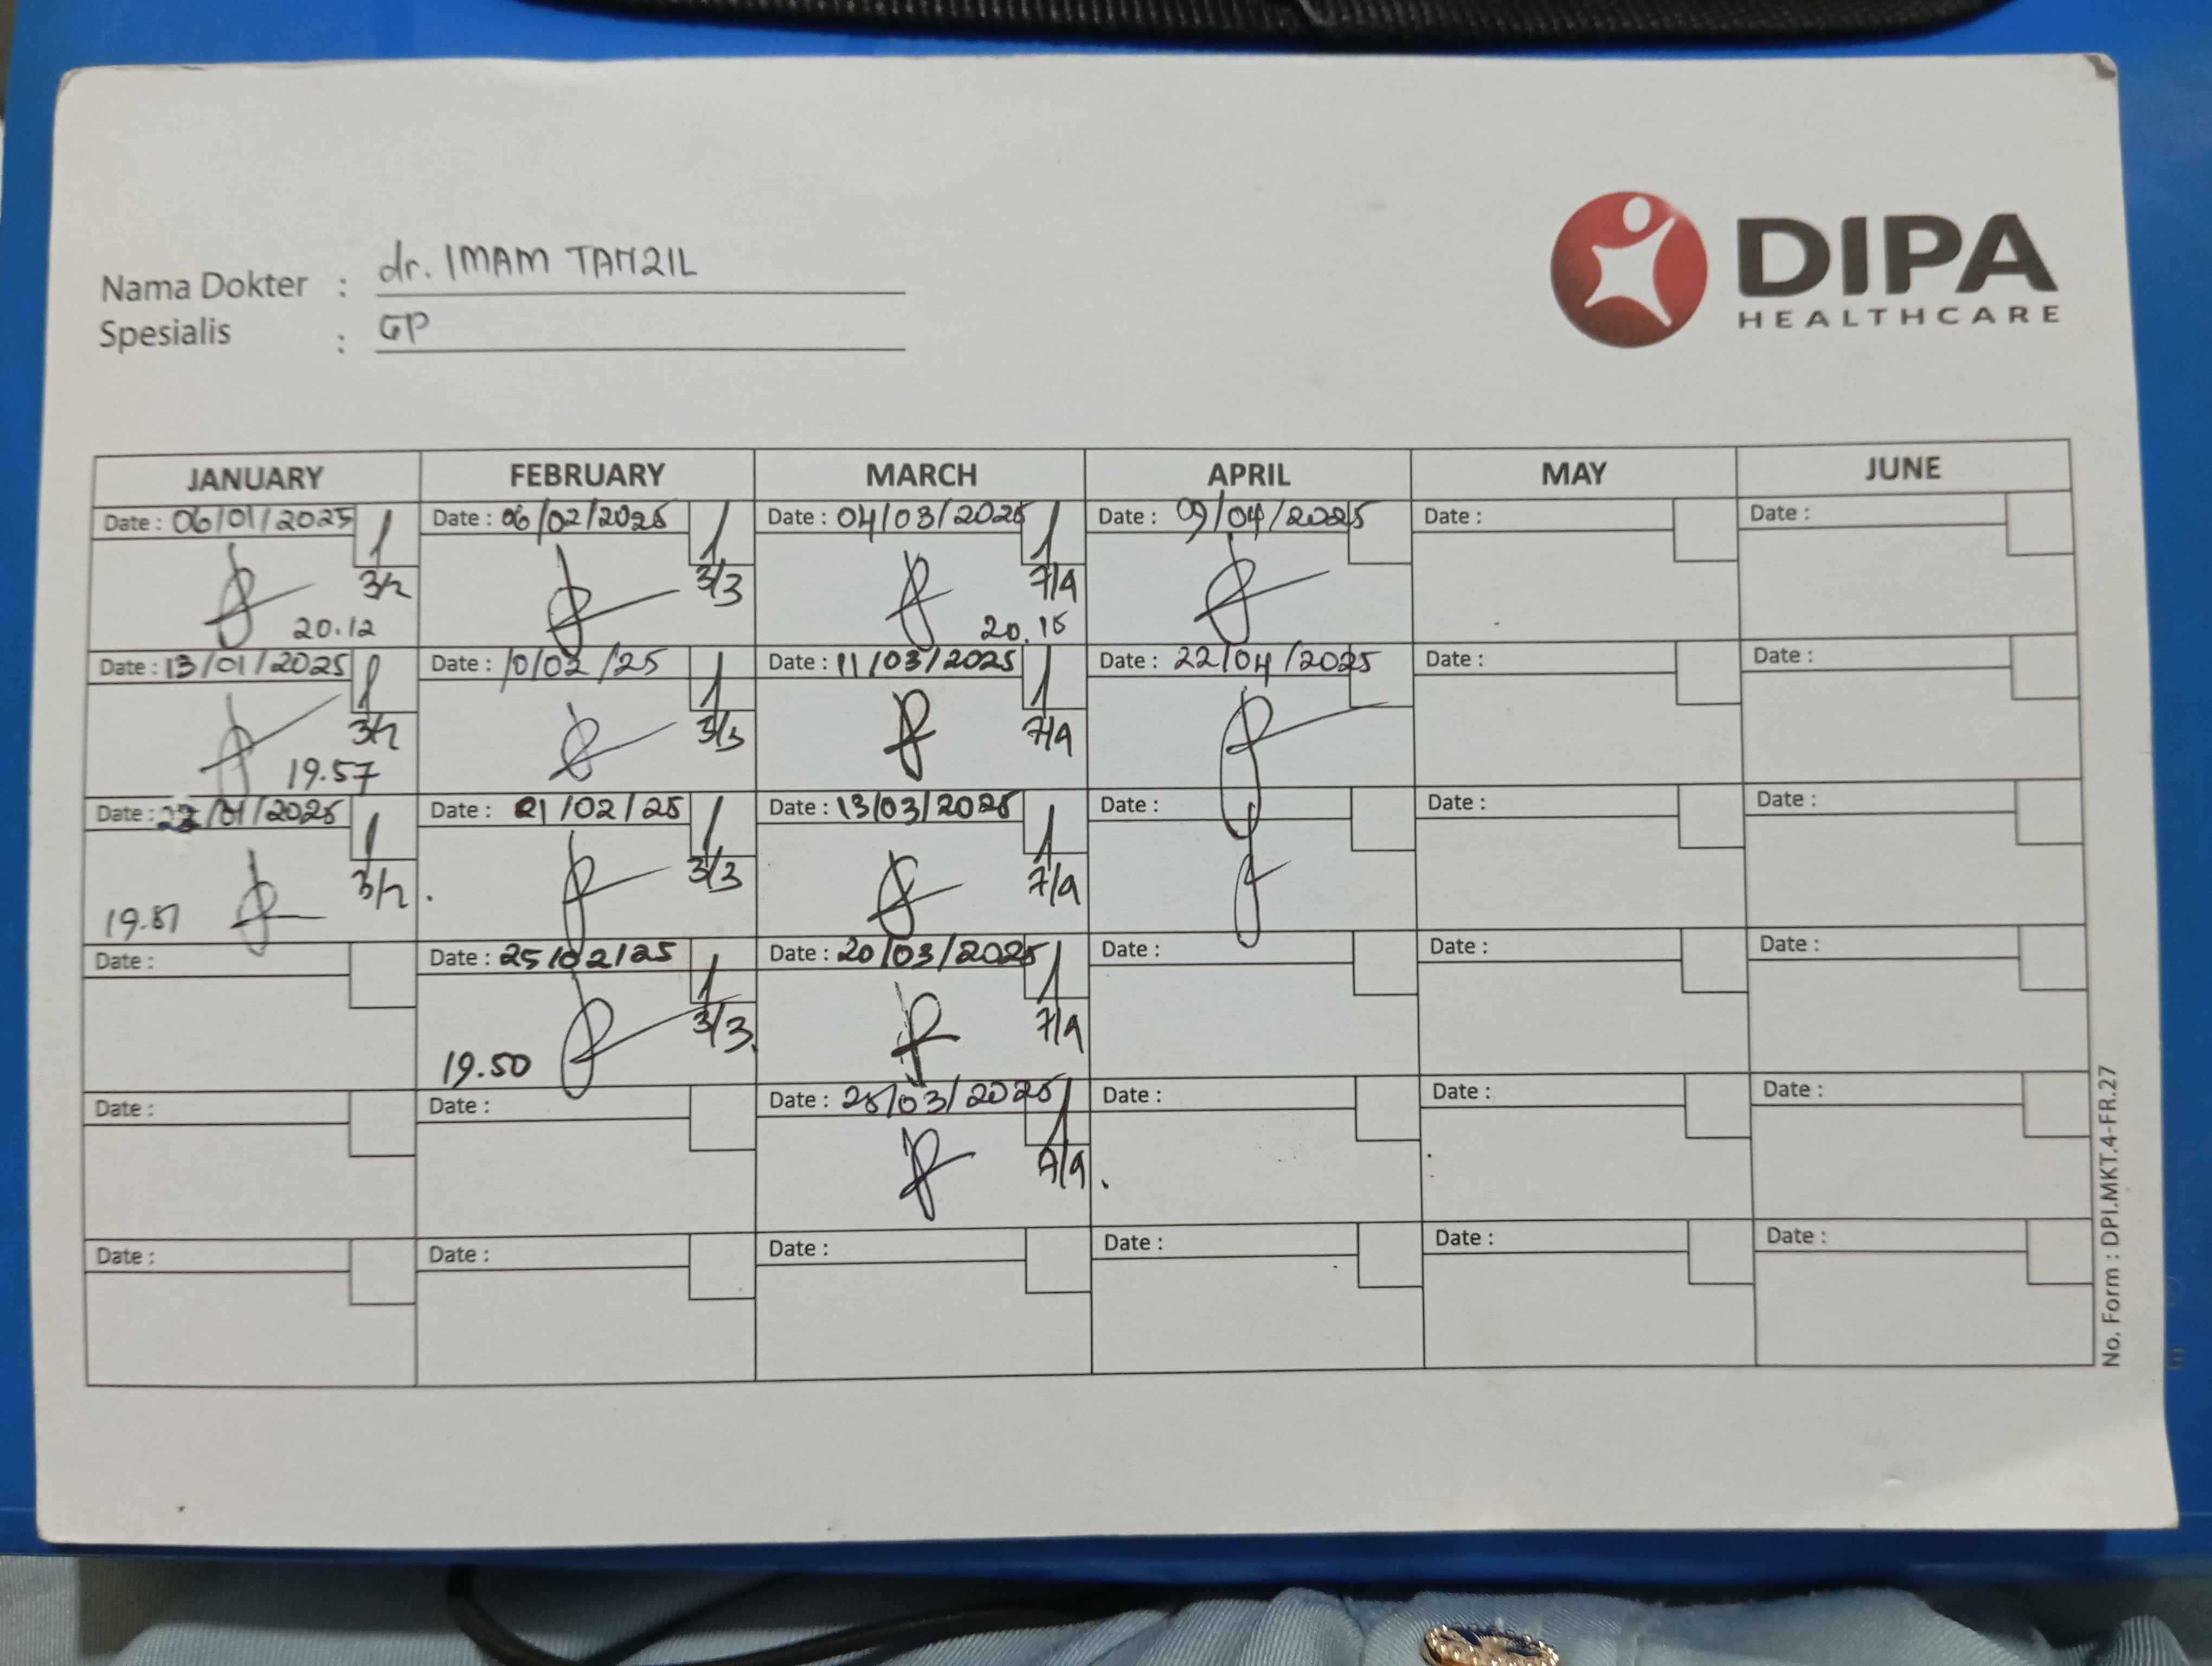 DIPA
HEALTHCARE
Nama Dokter : dr. IMAM TANZIL
Spesialis : GP
JANUARY FEBRUARY MARCH APRIL MAY JUNE
Date : 06/01/2025 Date : 06/02/2025 Date : 04/03/2025 Date : 09/04/2025 Date : Date :
3/2 3/3 7/4
20.12 20.15
Date : 13/01/2025 Date : 10/02/25 Date : 11/03/2025 Date : 22/04/2025 Date : Date :
3/2 3/3 7/4
19.57
Date : /01/2025 Date : 21/02/25 Date : 13/03/2025 Date : Date : Date :
3/2 3/3 7/4
19.51
Date : Date : 25/02/25 Date : 20/03/2025 Date : Date : Date :
3/3 7/4
19.50
Date : Date : Date : 25/03/2025 Date : Date : Date :
7/4
Date : Date : Date : Date : Date : Date :
No. Form : DPI.MKT.4-FR.27